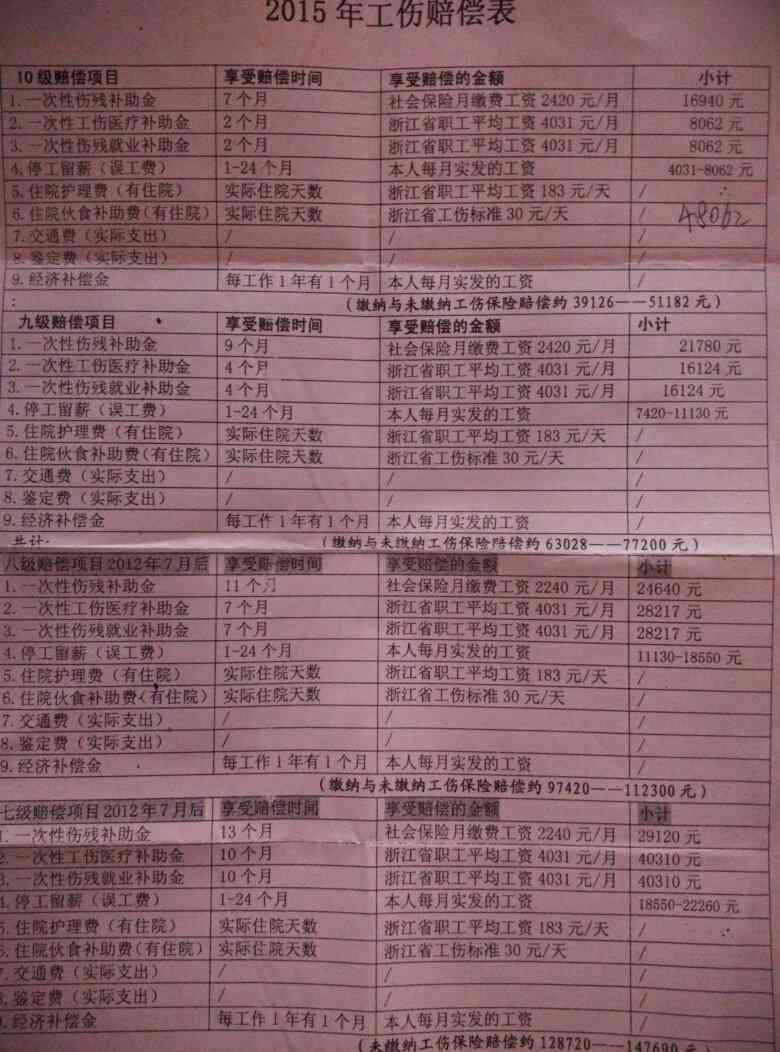 2015年工伤赔偿表
10级赔偿项目 享受赔偿时间 享受赔偿的金额 小计
1.一次性伤残补助金 7个月 社会保险月缴费工资2420元/月 16940元
2.一次性工伤医疗补助金 2个月 浙江省职工平均工资4031元/月 8062元
3.一次性伤残就业补助金 2个月 浙江省职工平均工资4031元/月 8062元
4.停工留薪（误工费） 1-24个月 本人每月实发的工资 4031-8062元
5.住院护理费（有住院） 实际住院天数 浙江省职工平均工资183元/天 /
6.住院伙食补助费（有住院） 实际住院天数 浙江省工伤标准30元/天 / 48062
7.交通费（实际支出） / / /
8.鉴定费（实际支出） / / /
9.经济补偿金 每工作1年有1个月 本人每月实发的工资 /
: （缴纳与未缴纳工伤保险赔偿约39126——51182元）
九级赔偿项目 享受赔偿时间 享受赔偿的金额 小计
1.一次性伤残补助金 9个月 社会保险月缴费工资2420元/月 21780元
2.一次性工伤医疗补助金 4个月 浙江省职工平均工资4031元/月 16124元
3.一次性伤残就业补助金 4个月 浙江省职工平均工资4031元/月 16124元
4.停工留薪（误工费） 1-24个月 本人每月实发的工资 7420-11130元
5.住院护理费（有住院） 实际住院天数 浙江省职工平均工资183元/天 /
6.住院伙食补助费（有住院） 实际住院天数 浙江省工伤标准30元/天 /
7.交通费（实际支出） / / /
8.鉴定费（实际支出） / / /
9.经济补偿金 每工作1年有1个月 本人每月实发的工资 /
共计: （缴纳与未缴纳工伤保险赔偿约63028——77200元）
八级赔偿项目2012年7月后 享受赔偿时间 享受赔偿的金额 小计
1.一次性伤残补助金 11个月 社会保险月缴费工资2240元/月 24640元
2.一次性工伤医疗补助金 7个月 浙江省职工平均工资4031元/月 28217元
3.一次性伤残就业补助金 7个月 浙江省职工平均工资4031元/月 28217元
4.停工留薪（误工费） 1-24个月 本人每月实发的工资 11130-18550元
5.住院护理费（有住院） 实际住院天数 浙江省职工平均工资183元/天 /
6.住院伙食补助费（有住院） 实际住院天数 浙江省工伤标准30元/天 /
7.交通费（实际支出） / / /
8.鉴定费（实际支出） / / /
9.经济补偿金 每工作1年有1个月 本人每月实发的工资 /
（缴纳与未缴纳工伤保险赔偿约97420——112300元）
七级赔偿项目2012年7月后 享受赔偿时间 享受赔偿的金额 小计
1.一次性伤残补助金 13个月 社会保险月缴费工资2240元/月 29120元
2.一次性工伤医疗补助金 10个月 浙江省职工平均工资4031元/月 40310元
3.一次性伤残就业补助金 10个月 浙江省职工平均工资4031元/月 40310元
4.停工留薪（误工费） 1-24个月 本人每月实发的工资 18550-22260元
5.住院护理费（有住院） 实际住院天数 浙江省职工平均工资183元/天 /
6.住院伙食补助费（有住院） 实际住院天数 浙江省工伤标准30元/天 /
7.交通费（实际支出） / / /
8.鉴定费（实际支出） / / /
9.经济补偿金 每工作1年有1个月 本人每月实发的工资 /
（未缴纳工伤保险赔偿约128720——147690元）